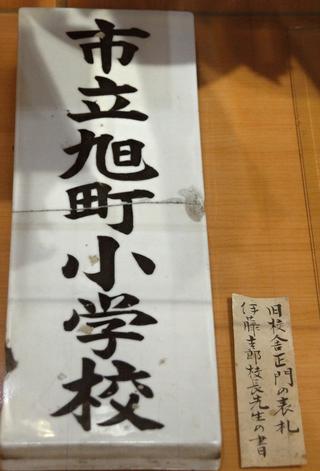 市立旭町小学校
旧校舎正門の表札
伊藤吉郎校長先生の書